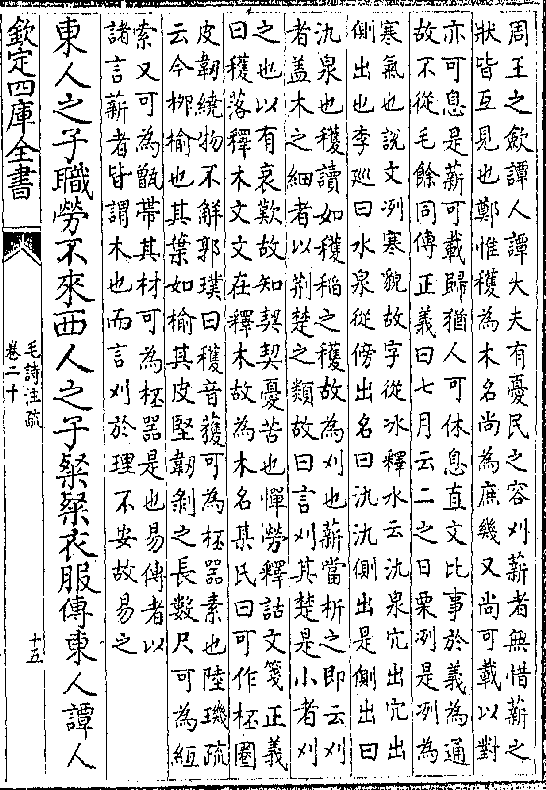 周王之歛譚人譚大夫有憂民之容刈薪者無惜薪之
狀皆互見也鄭惟穫為木名尚為庶幾又尚可載以對
亦可息是薪可載歸猶人可休息直文比事於義為通
故不從毛餘同傳正義曰七月云二之日栗冽是冽為
寒氣也說文冽寒貌故字從冰釋水云氿泉穴出穴出
側出也李廵曰水泉從傍出名曰氿氿側出是側出曰
氿泉也穫讀如穫稻之穫故為刈也薪當析之即云刈
者盖木之細者以荆楚之類故曰言刈其楚是小者刈
之也以有哀歎故知契契憂苦也憚勞釋詁文箋正義
曰穫落釋木文文在釋木故為木名某氏曰可作杯圈
皮韌繞物不解郭璞曰穫音獲可為杯器素也陸璣疏
云今柳榆也其葉如榆其皮堅韌剝之長數尺可為絙
索又可為甑帶其材可為杯器是也易傳者以
諸言薪者皆謂木也而言刈於理不安故易之
東人之子職勞不來西人之子粲粲衣服傳東人譚人
欽定四庫全書
毛詩注疏
卷二十
十五